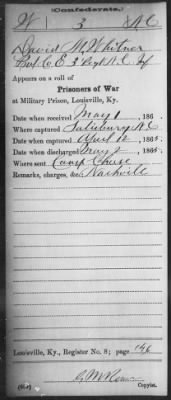 (Confederate.)
W 3 N.C.
David M. Whitner
Pvt Co. E. 3 Regt N.C. Inf
Appears on a roll of
Prisoners of War
at Military Prison, Louisville, Ky.
Date when received May 1, 186 .
Where captured Salisbury N.C.
Date when captured April 12, 1865.
Date when discharged May 2, 1865.
Where sent Camp Chase
Remarks, charges, &c. Nashville
Louisville, Ky., Register No. 8; page
Copyist.